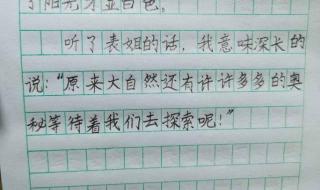 了阳光才显白色。
听了表姐的话，我意味深长的
说：“原来大自然还有许许多多的奥
秘等待着我们去探索呢！”